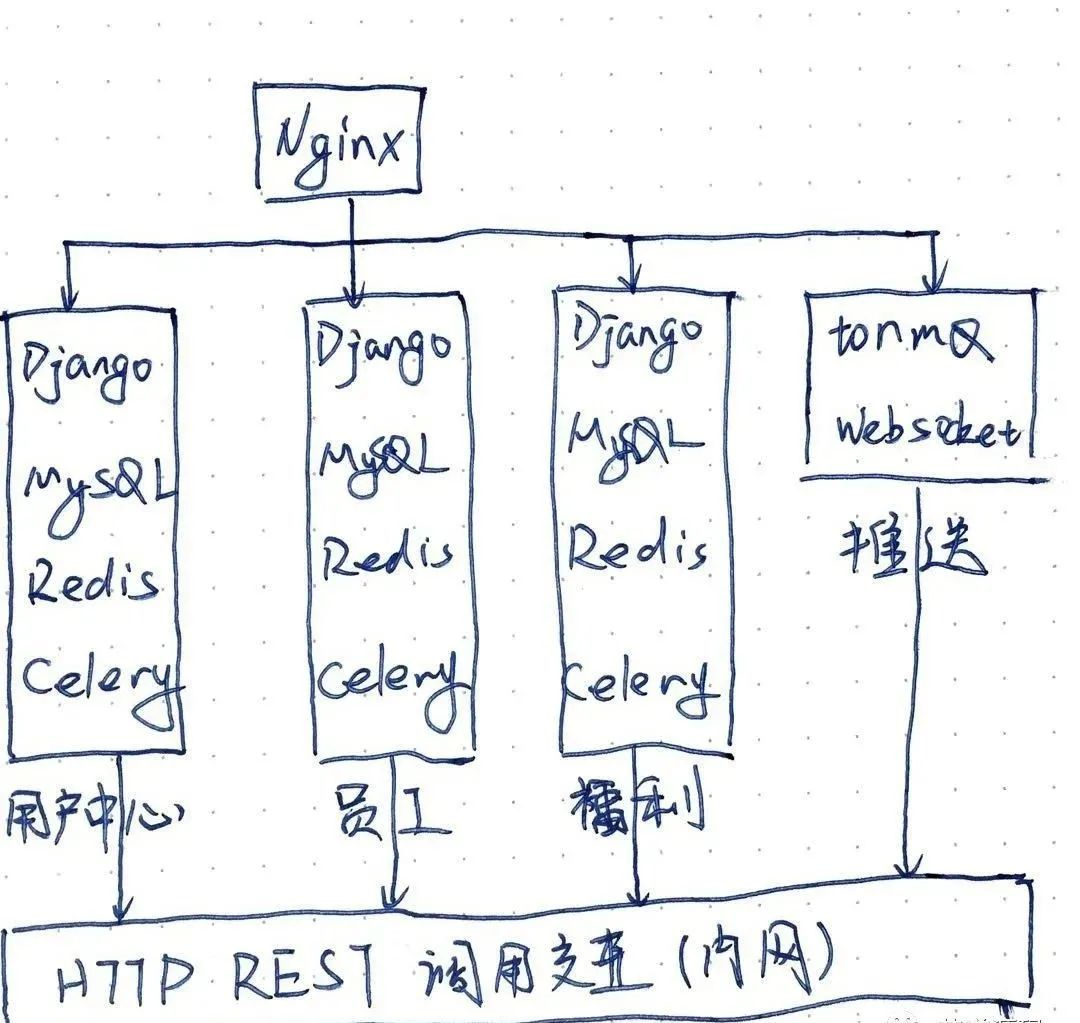 Nginx
Django
MySQL
Redis
Celery
用户中心
Django
MySQL
Redis
Celery
员工
Django
MySQL
Redis
Celery
福利
tonmQ
Websocket
推送
HTTP REST 调用交互(内网)